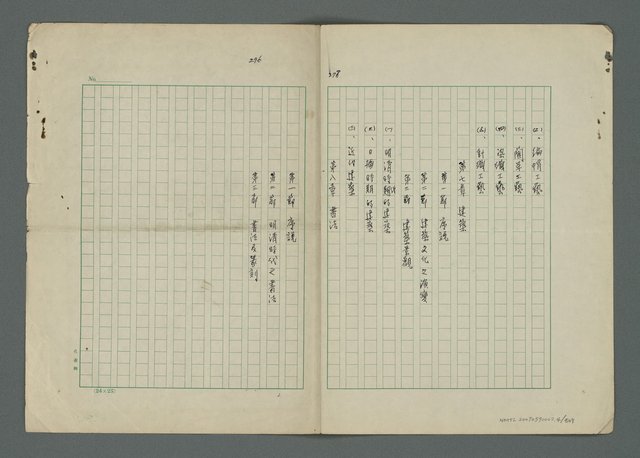 278
(二)、編帽工藝
(三)、藺草工藝
(四)、染織工藝
(五)、針織工藝
第七章 建築
第一節 序說
第二節 建築文化之演變
第三節 建築景觀
(一)、明清時期的建築
(二)、日據時期的建築
(三)、近代建築
第八章 書法
296
No.
第一節 序說
第二節 明清時代之書法
第三節 書法及篆刻。
(24×25)